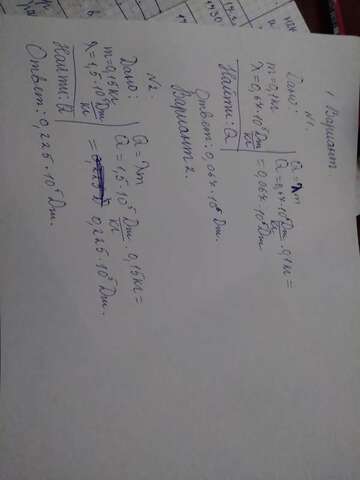 1 Вариант
N1.
Дано:
m=0,1кг
λ=0,67·10⁵ Дж/кг
Найти: Q
Q=λm
Q=0,67·10⁵ Дж/кг · 0,1кг =
= 0,067·10⁵ Дж
Ответ: 0,067·10⁵ Дж.
Вариант 2.
N2.
Дано:
m=0,15кг
λ=1,5·10⁵ Дж/кг
Найти: Q
Q=λm
Q=1,5·10⁵ Дж/кг · 0,15кг =
= 0,225·10⁵ Дж.
Ответ: 0,225·10⁵ Дж.